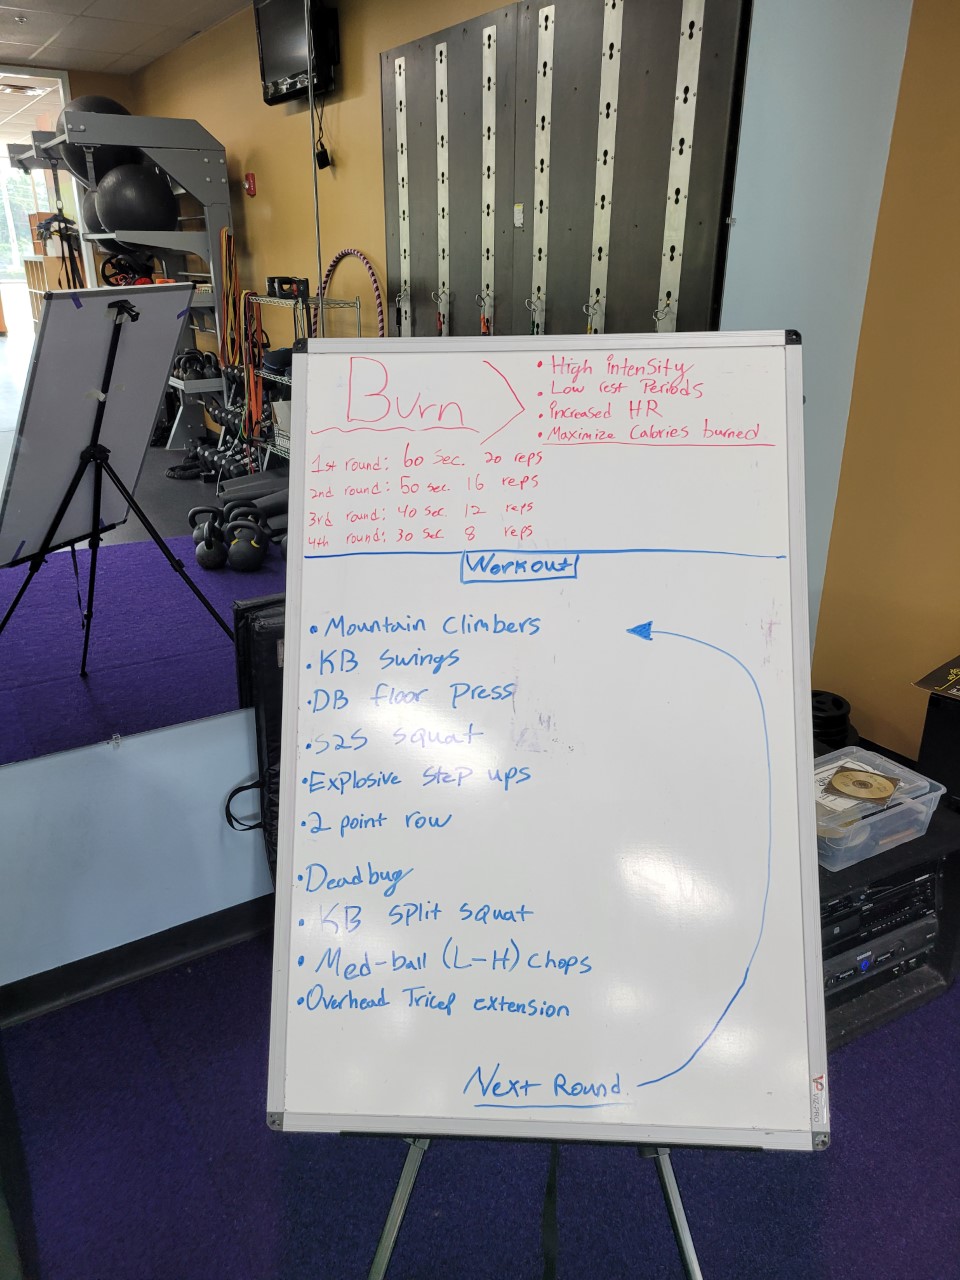 Burn
• High intensity
• Low rest Periods
• increased HR
• Maximize Calories burned
1st round: 60 sec. 20 reps
2nd round: 50 sec. 16 reps
3rd round: 40 sec. 12 reps
4th round: 30 sec 8 reps
Workout
• Mountain Climbers
• KB Swings
• DB floor Press
• S2S squat
• Explosive step ups
• 2 point row
• Deadbug
• KB split squat
• Med-ball (L-H) Chops
• Overhead Tricep extension
Next Round
VIZ-PRO